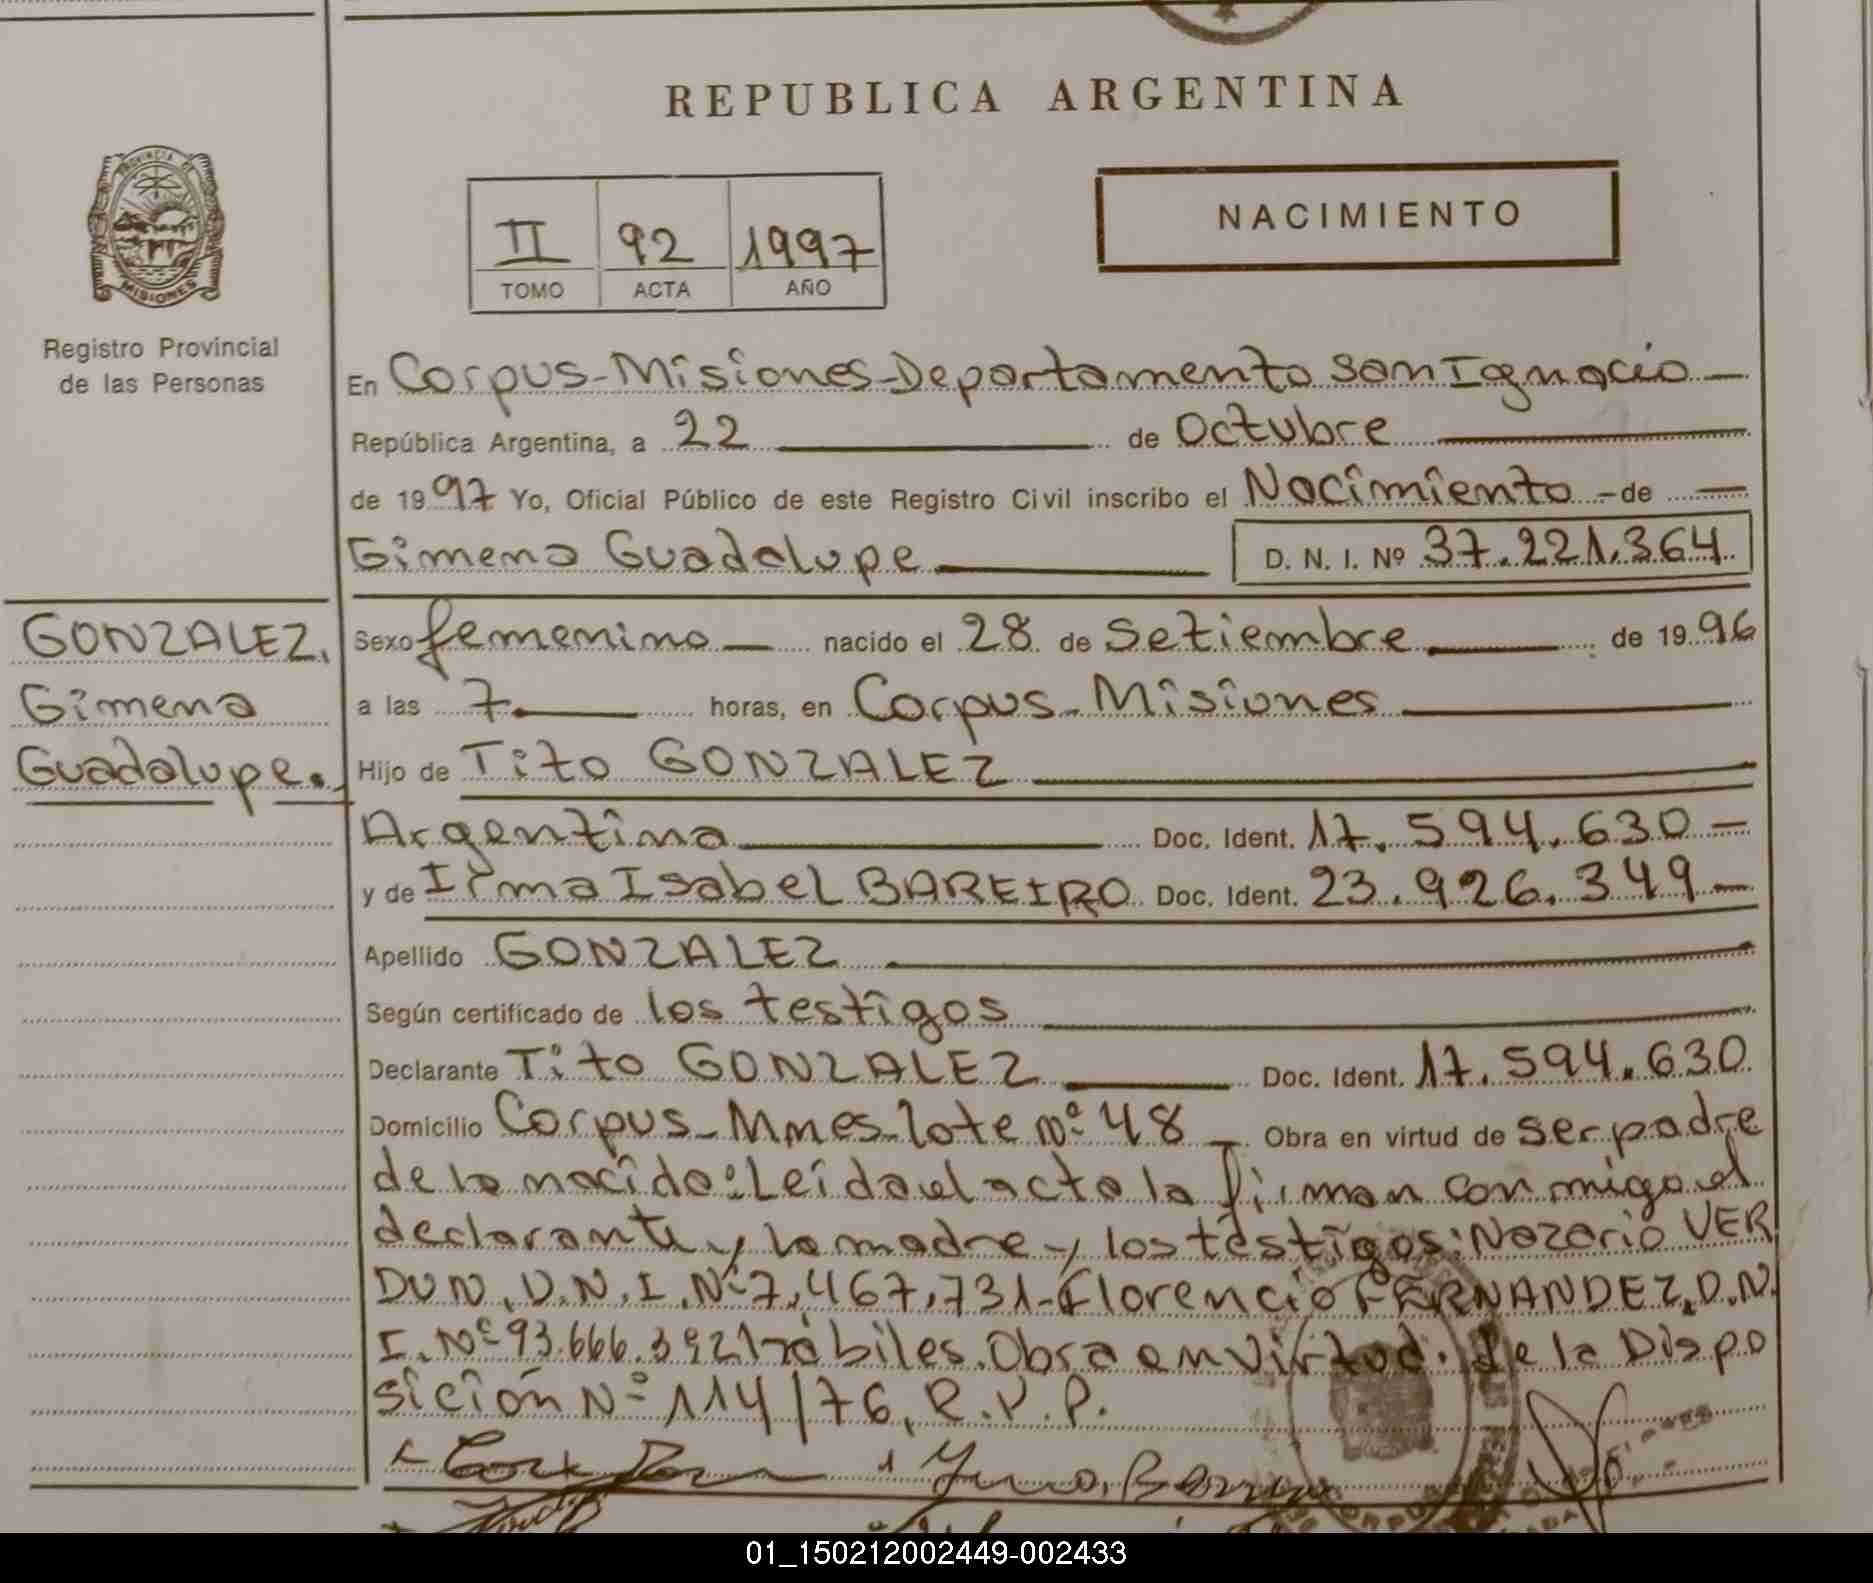 REPUBLICA ARGENTINA
PROVINCIA DE
MISIONES
Registro Provincial
de las Personas
NACIMIENTO
II 92 1997
TOMO ACTA AÑO
En Corpus-Misiones-Departamento San Ignacio
República Argentina, a 22 de Octubre
de 1997 Yo, Oficial Público de este Registro Civil inscribo el Nacimiento - de
Gimena Guadalupe D. N. I. Nº 37.221.364
GONZALEZ,
Gimena
Guadalupe.
Sexo femenino nacido el 28 de Setiembre de 1996
a las 7 horas, en Corpus-Misiones
Hijo de Tito GONZALEZ
Argentina Doc. Ident. 17.594.630
y de Irma Isabel BAREIRO Doc. Ident. 23.926.349
Apellido GONZALEZ
Según certificado de los testigos
Declarante Tito GONZALEZ Doc. Ident. 17.594.630
Domicilio Corpus-Mnes-lote Nº 48 Obra en virtud de ser padre
de la nacida: Leída el acta la firman conmigo el
declarante y la madre y los testigos: Nazario VER
DUN, D.N.I. Nº 7.467.731-Florencio FERNANDEZ, D.N.
I. Nº 93.666.392 hábiles. Obra en virtud de la Dispo
sición Nº 114/76, R.P.P.
01_150212002449-002433